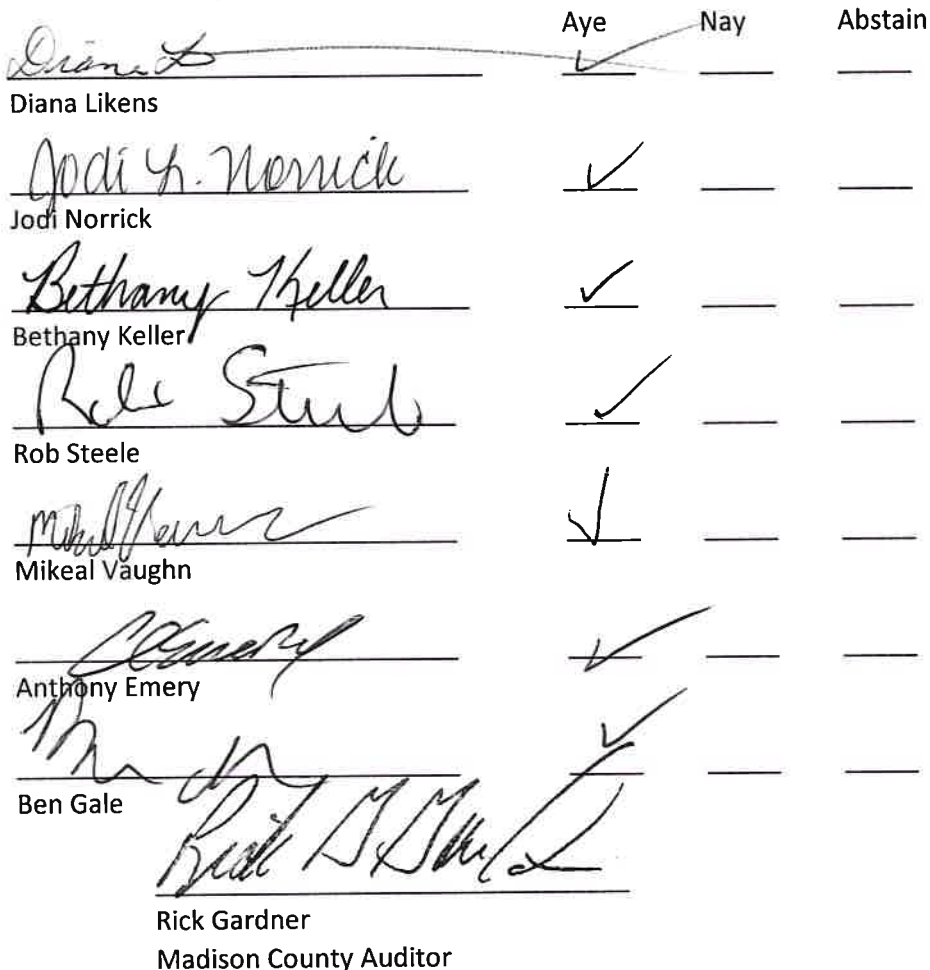 Aye Nay Abstain
Diana L ✓
Diana Likens
Jodi L. Norrick ✓
Jodi Norrick
Bethany Keller ✓
Bethany Keller
Rob Steele ✓
Rob Steele
✓
Mikeal Vaughn
✓
Anthony Emery
✓
Ben Gale
Rick Gardner
Madison County Auditor